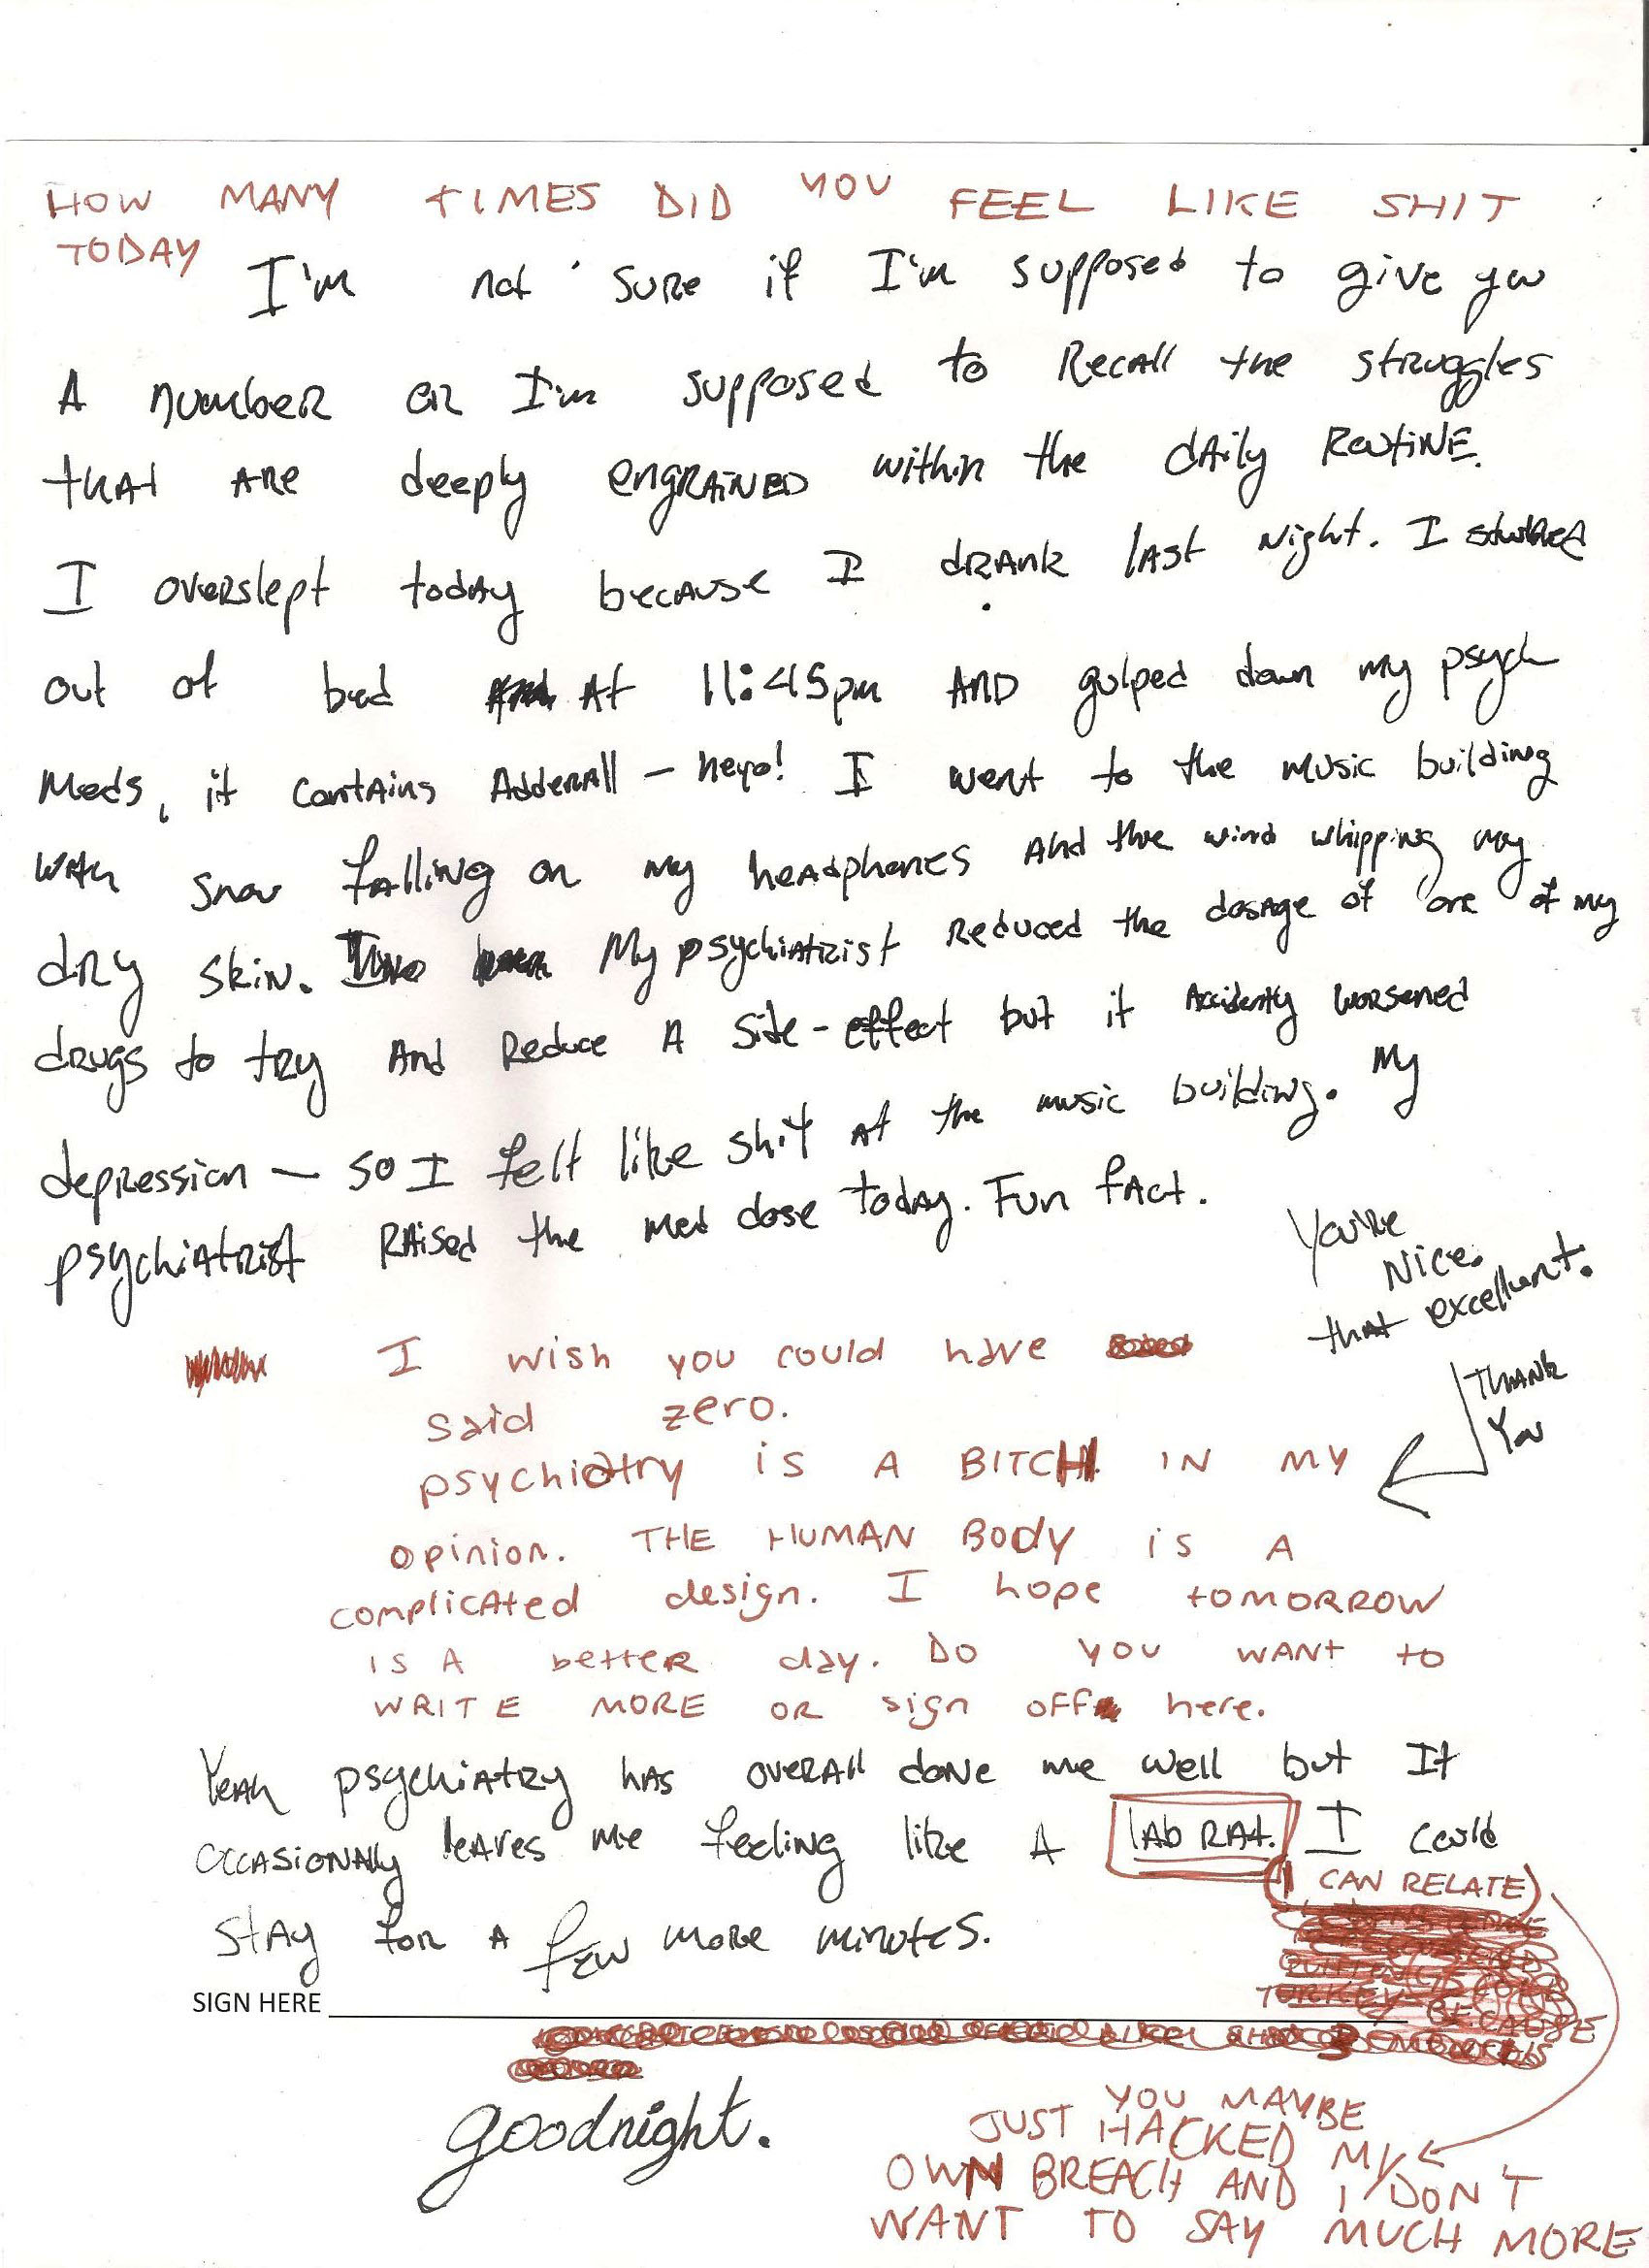 HOW MANY TIMES DID YOU FEEL LIKE SHIT
TODAY
I'm not sure if I'm supposed to give you
A number or I'm supposed to Recall the struggles
that are deeply engrained within the daily routine.
I overslept today because I drank last night. I
out of bed At 11:45pm AND gulped down my psych
meds, it contains Adderall - heyo! I went to the music building
with snow falling on my headphones and the wind whipping my
dry skin. My psychiatrist reduced the dosage of one of my
drugs to try and reduce a side-effect but it Accidently worsened
depression — so I felt like shit at the music building. My
psychiatrist raised the med dose today. Fun fact.
You're
Nice.
that excellent.
THANK
YOU
I wish you could have
said zero.
psychiatry is A BITCH IN MY
opinion. THE HUMAN BODY is A
complicated design. I hope tomorrow
is A better day. Do you want to
WRITE MORE OR sign off here.
Yeah psychiatry has overall done me well but It
occasionally leaves me feeling like A lab rat. I could
(I CAN RELATE)
stay for a few more minutes.
TURKEY BECAUSE
SIGN HERE
goodnight.
YOU MAYBE
JUST HACKED MY
OWN BREACH AND I DON'T
WANT TO SAY MUCH MORE